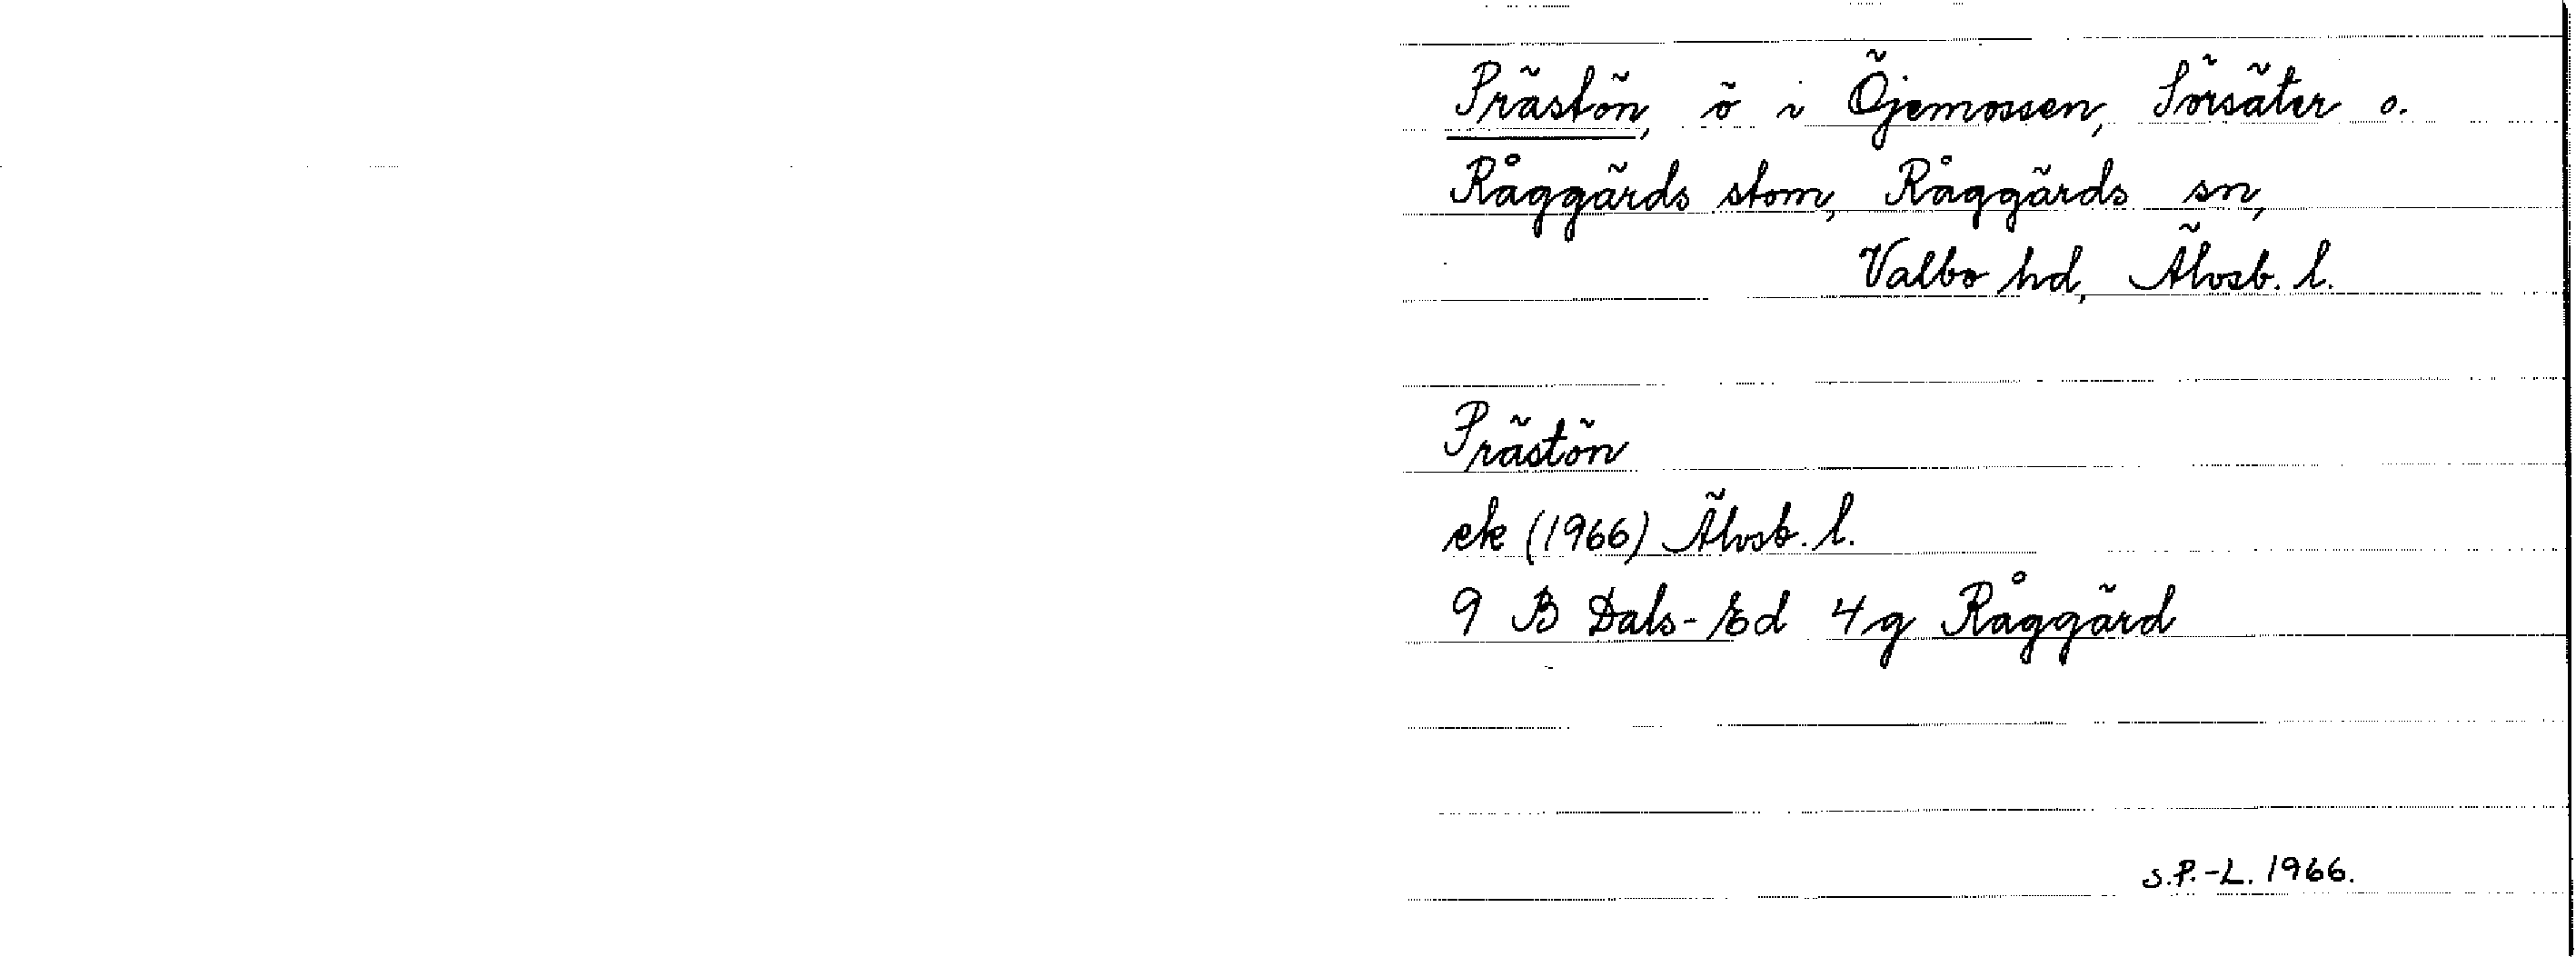 Prästön, ö i Öjemossen, Sörsäter o.
Råggärds stom, Råggärds sn,
Valbo hd, Älvsb. l.
Prästön
ek (1966) Älvsb. l.
9 B Dals-Ed 4g Råggärd
S.P.-L. 1966.